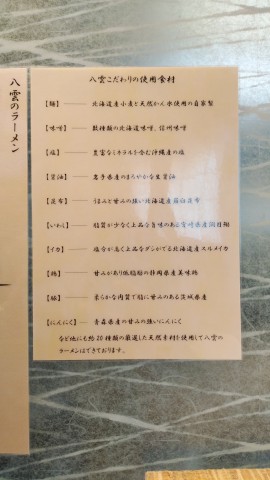 八雲のラーメン
八雲こだわりの使用食材
【麺】 北海道産小麦と天然かん水使用の自家製
【味噌】 数種類の北海道味噌、信州味噌
【塩】 豊富なミネラルを含む沖縄産の塩
【醤油】 岩手県産のまろやかな生醤油
【昆布】 旨みと甘みの強い北海道産羅臼昆布
【いわし】 脂質が少なく上品な旨味のある宮崎県産
【イカ】 塩分が高く上品なダシがでる北海道産スルメイカ
【鶏】 甘みがあり低脂肪の静岡県産美味鶏
【豚】 柔らかな肉質で脂に甘みのある茨城県産
【にんにく】 青森県産の甘みの強いにんにく
など他にも約20種類の厳選した天然素材を使用して八雲の
ラーメンはできております。